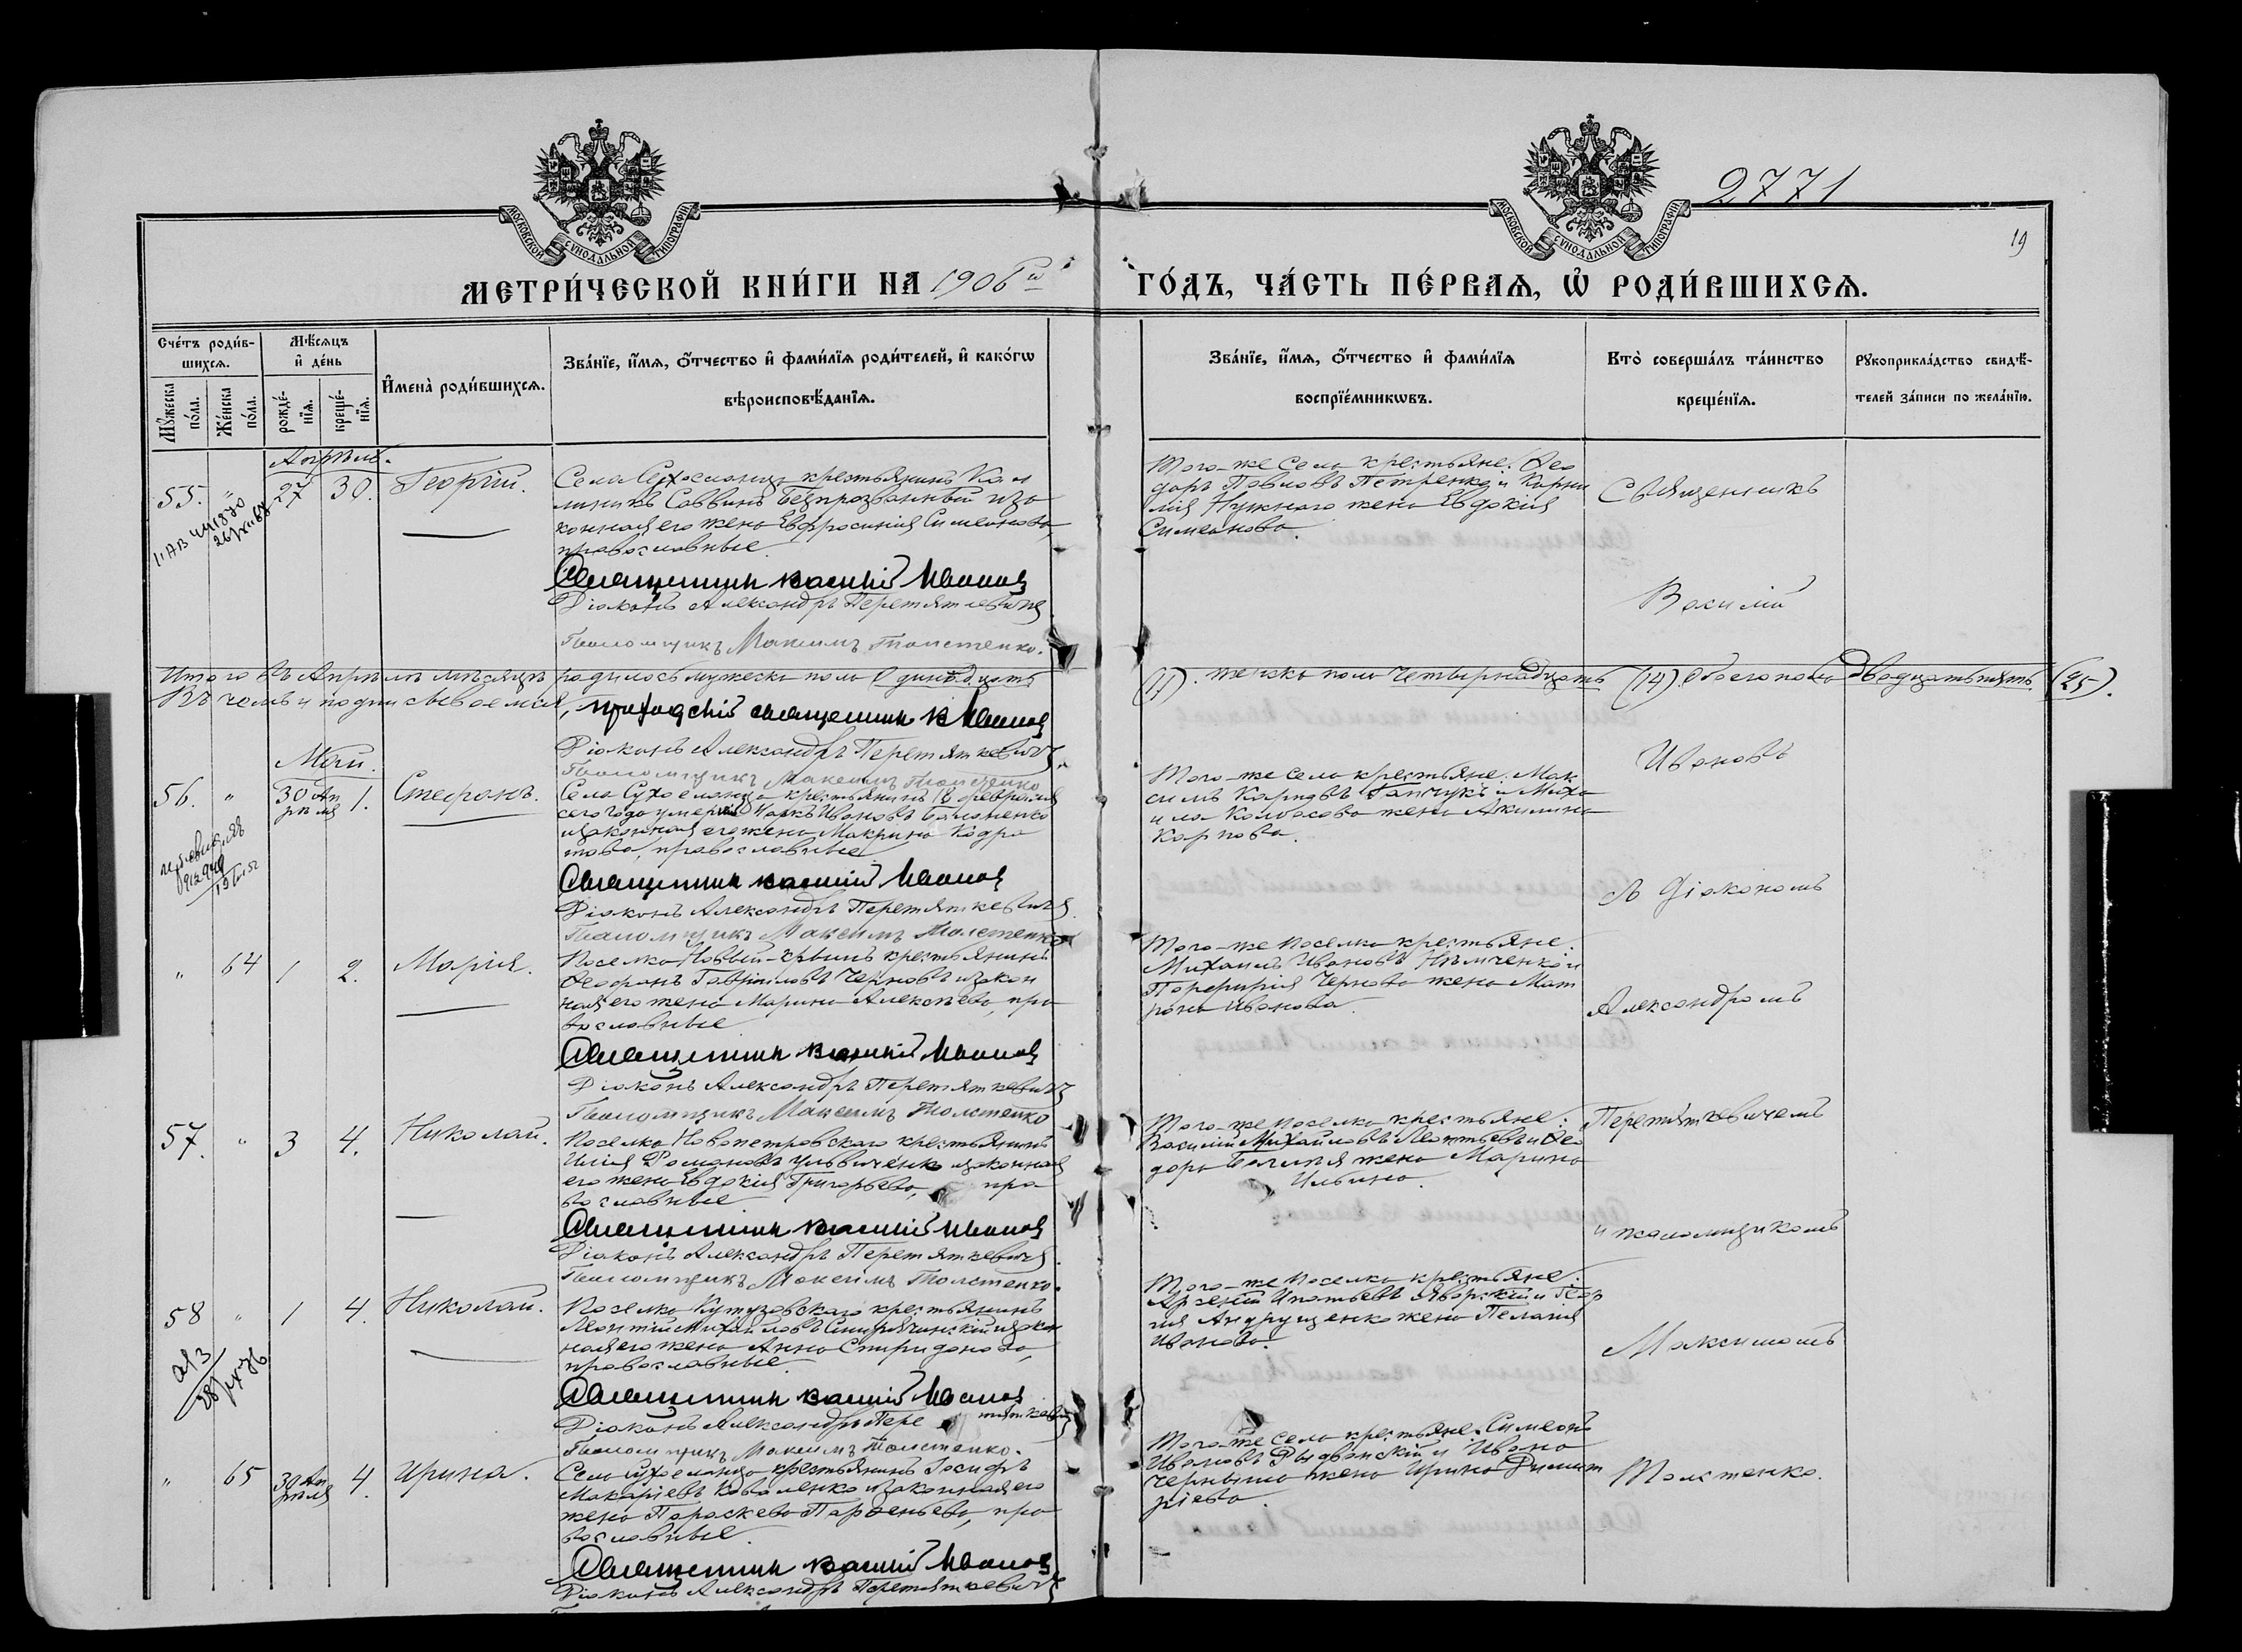 МОСКОВСКОЙ СѴНОДАЛЬНОЙ ТИПОГРАФІИ
МОСКОВСКОЙ СѴНОДАЛЬНОЙ ТИПОГРАФІИ
2771
19
МЕТРИ́ЧЕСКОЙ КНИ́ГИ НА 1906й
ГО́ДЪ, ЧА́СТЬ ПЕ́РВАѦ, Ѡ҆ РОДИ́ВШИХСѦ.
Сче́тъ роди́в-
шихсѧ.
Мꙋ́жеска
по́ла.
Же́нска
по́ла.
Мѣ́сѧцъ
и҆ де́нь
рожде́-
нїѧ.
креще́-
нїѧ.
И҆мена̀ роди́вшихсѧ.
Зва́нїе, и҆́мѧ, ѻ҆́тчество и҆ фами́лїѧ роди́телей, и҆ како́гѡ
вѣроисповѣ́данїѧ.
Зва́нїе, и҆́мѧ, ѻ҆́тчество и҆ фами́лїѧ
воспрїе́мникѡвъ.
Кто̀ соверша́лъ та́инство
креще́нїѧ.
Рꙋкоприкла́дство свидѣ́-
телей за́писи по жела́нїю.
Апрѣль.
55. " 27 30. Георгій.
Села Сухоеланца крестьянинъ Кал
линикъ Саввинъ Безпрозванный и за
конная его жена Евфросинія Симеонова,
православные.
Священникъ Василій Ивановъ
Діаконъ Александръ Перетяткевичъ
Псаломщикъ Максимъ Толстенко.
Того-же села крестьяне: Ѳео
доръ Павловъ Петренко и Корни
лія Нужнаго жена Евдокія
Симеонова.
Священникъ
Василій
Итого въ Апрѣлѣ мѣсяцѣ родилось мужеска пола Одинадцать (11). женска пола Четырнадцать (14). Обоего пола Двадцать пять (25).
Въ чемъ и подписываемся, приходскій священникъ В Ивановъ
Діаконъ Александръ Перетяткевичъ.
Псаломщикъ Максимъ Толстенко
Май.
56. " 30 Ап
рѣля 1. Стефанъ.
Села Сухоеланца крестьянинъ 18 февраля
сего года умершій Маркъ Ивановъ
законная его жена Макрина Кодра
това, православные
Священникъ Василій Ивановъ
Діаконъ Александръ Перетяткевичъ.
Псаломщикъ Максимъ Толстенко
Того-же села крестьяне: Мак
симъ Карповъ Гапчукъ и Миха
ила Колбасова жена Акилина
Карпова.
Ивановъ
съ Діакономъ
" 64 1 2. Марія.
Поселка Новый-Крымъ крестьянинъ
Ѳеофанъ Гавріиловъ Черновъ и закон
ная его жена Марина Алексѣева, пра
вославные
Священникъ Василій Ивановъ
Діаконъ Александръ Перетяткевичъ
Псаломщикъ Максимъ Толстенко
Того-же поселка крестьяне:
Михаилъ Ивановъ Нѣмченко и
Порфирія Чернова жена Мат
рона Иванова.
Александромъ
57. " 3 4. Николай.
Поселка Новопетровскаго крестьянинъ
Илія Романовъ законная
его жена Евдокія Григорьева, пра
вославные
Священникъ Василій Ивановъ
Діаконъ Александръ Перетяткевичъ.
Псаломщикъ Максимъ Толстенко.
Того-же поселка крестьяне:
Василій Михайловъ Леонтьевъ и Ѳео
дора жена Марина
Ильина.
Перетяткевичемъ
и псаломщикомъ
58 " 1 4. Николай.
Поселка Кутузовскаго крестьянинъ
Леонтій Михайловъ и закон
ная его жена Анна Спиридонова,
православные.
Священникъ Василій Ивановъ
Діаконъ Александръ Перетяткевичъ
Псаломщикъ Максимъ Толстенко.
Того-же поселка крестьяне:
Арсеній Игнатьевъ Яворскій и Геор
гія Андрущенко жена Пелагія
Иванова.
Максимомъ
" 65 30 Ап
рѣля 4. Ирина.
Села Сухоеланца крестьянинъ Іосифъ
Макаріевъ Коваленко и законная его
жена Параскева Парѳеньева, пра
вославные.
Священникъ Василій Ивановъ
Діаконъ Александръ Перетяткевичъ
Того-же села крестьяне: Симеонъ
Ивановъ Рыдванскій и Ивана
Черныша жена Ирина Димит
ріева.
Толстенко.